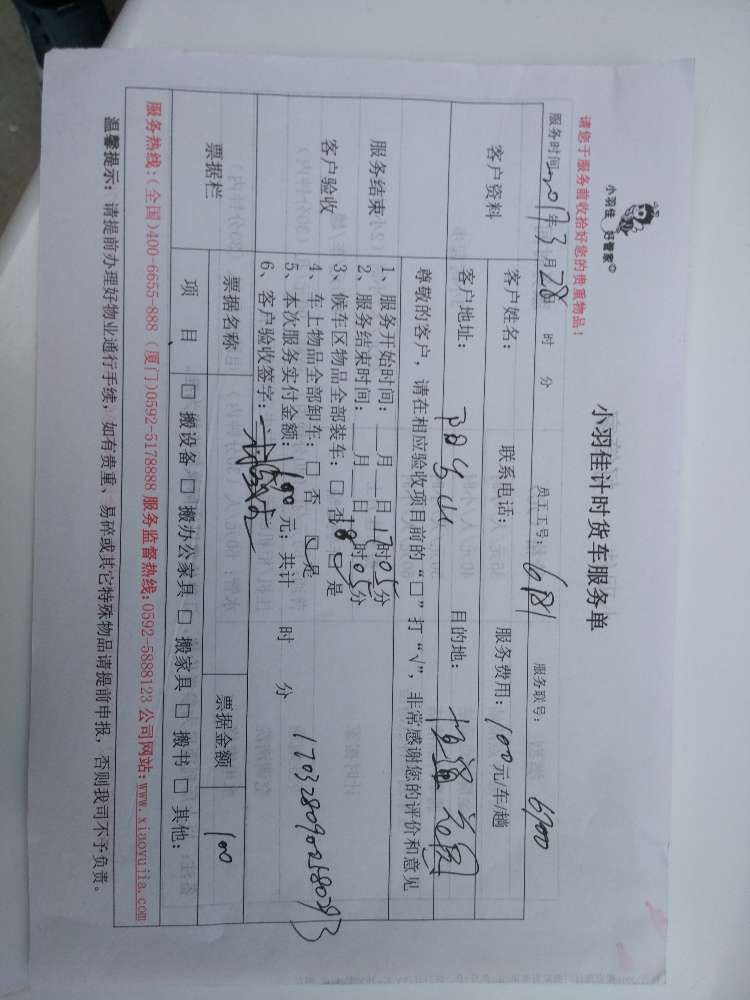 小羽佳 好管家
小羽佳计时货车服务单
请您于服务前收拾好您的贵重物品！
服务时间 2017年3月28 时 分 员工工号：681 服务联号：6700
客户资料 客户姓名： 联系电话： 服务费用：100元/车/趟
客户地址： 目的地：
尊敬的客户，请在相应验收项目前的“□”打“√”，非常感谢您的评价和意见
服务结束
客户验收
1、服务开始时间：__月__日17时05分
2、服务结束时间：__月__日18时05分
3、候车区物品全部装车：□ 否 □ 是
4、车上物品全部卸车：□ 否 □ 是
5、本次服务实付金额：100元；共计 时 分
6、客户验收签字：
1703280902580293
票据栏 票据名称 票据金额 100
项 目 □ 搬设备 □ 搬办公家具 □ 搬家具 □ 搬书 □ 其他：
服务热线：(全国)400-6655-888 (厦门)0592-5178888 服务监督热线：0592-5888123 公司网站：www.xiaoyujia.com
温馨提示：请提前办理好物业通行手续，如有贵重、易碎或其它特殊物品请提前申报，否则我司不予负责。